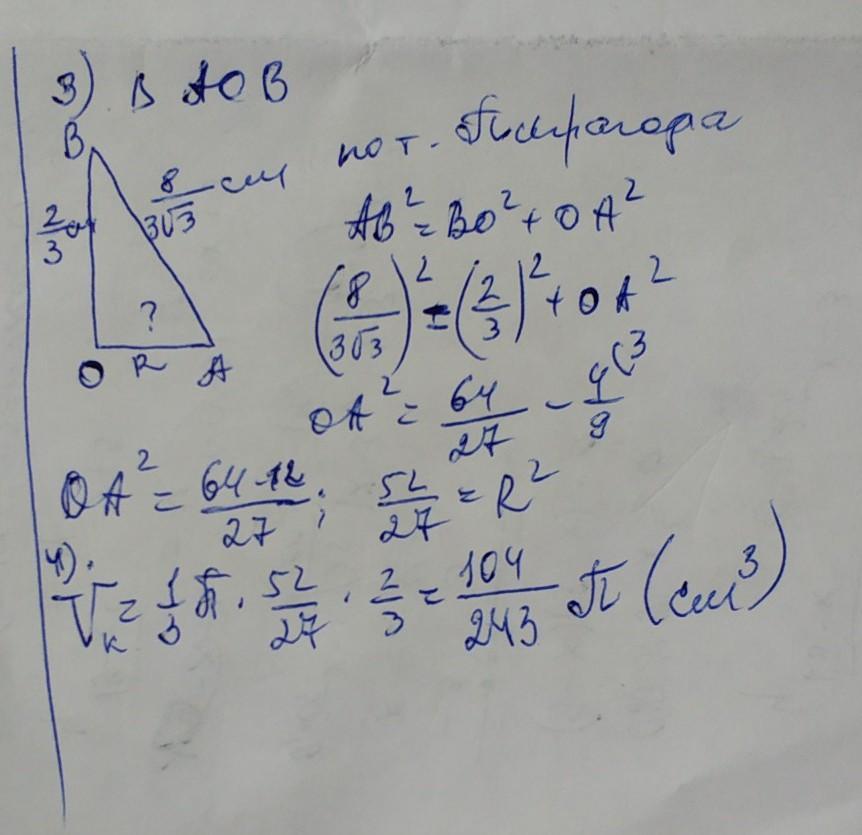 3) В AOB
B
8/(3√3) см
2/3 см
?
O R A
по т. Пифагора
AB² = BO² + OA²
(8/(3√3))² = (2/3)² + OA²
OA² = 64/27 - 4/9 (3
OA² = (64-12)/27; 52/27 = R²
4).
Vк = 1/3 π · 52/27 · 2/3 = 104/243 π (см³)